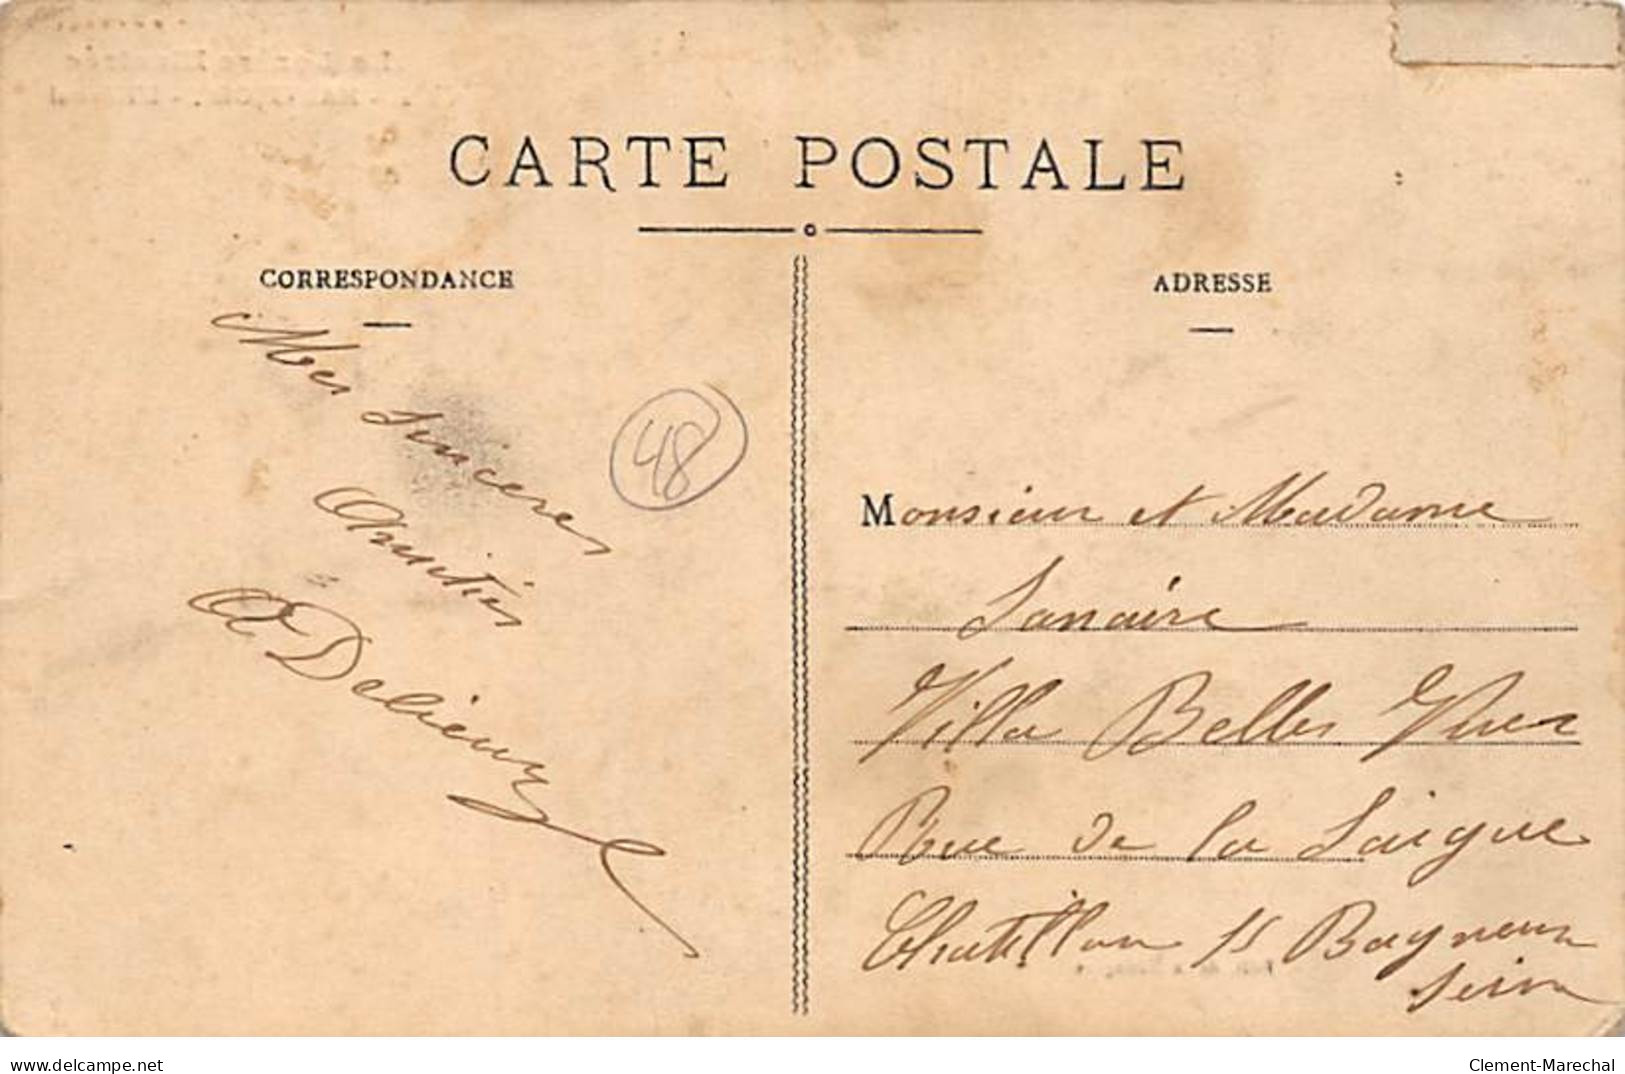 CARTE POSTALE
CORRESPONDANCE
Mes Sincères
Amitiés
48
ADRESSE
Monsieur et Madame
Villa Belles Vues
Rue de la
Chatillon ss Bagneux
Seine
delcampe.net
Clement-Marechal